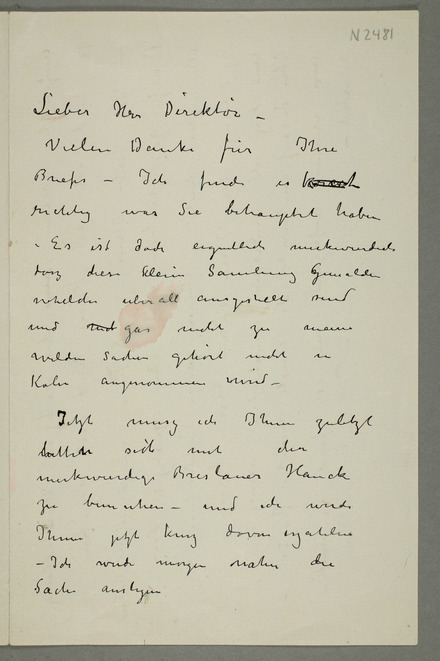 N 2481
Lieber Herr Direktor –
Vielen Danke für Ihre
Briefe – Ich finde es
richtig was Sie behauptet haben
. Es ist doch eigentlich merkwürdig
dasz diese kleine Sammlung Gemälde
welche überall ausgestellt sind
und gar nicht zu meine
wilden Sachen gehört nicht in
Koln angenommen wird –
Jetzt musz ich Ihnen zuletzt
bitten sich mit der
merkwurdige Breslauer Hancke
zu bemuehen – und ich werde
Ihnen jetzt kurz davon erzahlen
– Ich werde morgen die
Sache